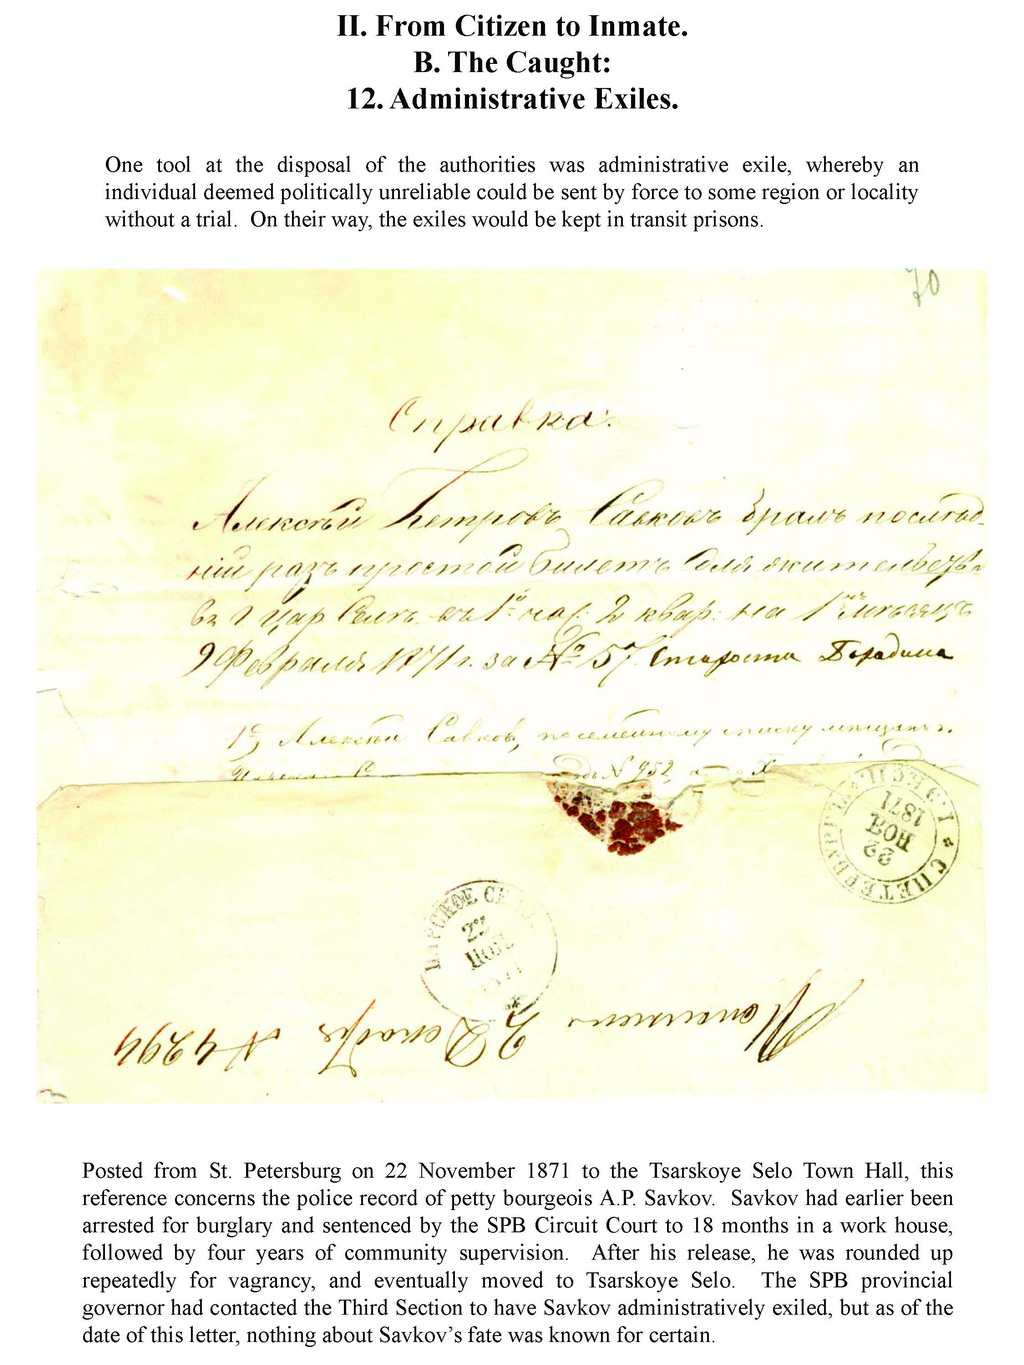 II. From Citizen to Inmate.
B. The Caught:
12. Administrative Exiles.
One tool at the disposal of the authorities was administrative exile, whereby an
individual deemed politically unreliable could be sent by force to some region or locality
without a trial. On their way, the exiles would be kept in transit prisons.
70
Справка:
Алексѣй Петровъ Савковъ бралъ послѣд-
ній разъ простой билетъ для жительства
въ г Цар Селѣ, въ 1й час: 2 квар: на 1 мѣсяцъ
9 Февраля 1871 г. за № 57. Староста
1) Алексѣй Савковъ, по семейному списку мѣщанъ г.
№ 952
С.ПЕТЕРБУРГЪ
22
НОЯ
1871
ЦАРСКОЕ СЕЛО
22
НОЯ
1871
2 Декабр № 4294
Posted from St. Petersburg on 22 November 1871 to the Tsarskoye Selo Town Hall, this
reference concerns the police record of petty bourgeois A.P. Savkov. Savkov had earlier been
arrested for burglary and sentenced by the SPB Circuit Court to 18 months in a work house,
followed by four years of community supervision. After his release, he was rounded up
repeatedly for vagrancy, and eventually moved to Tsarskoye Selo. The SPB provincial
governor had contacted the Third Section to have Savkov administratively exiled, but as of the
date of this letter, nothing about Savkov's fate was known for certain.